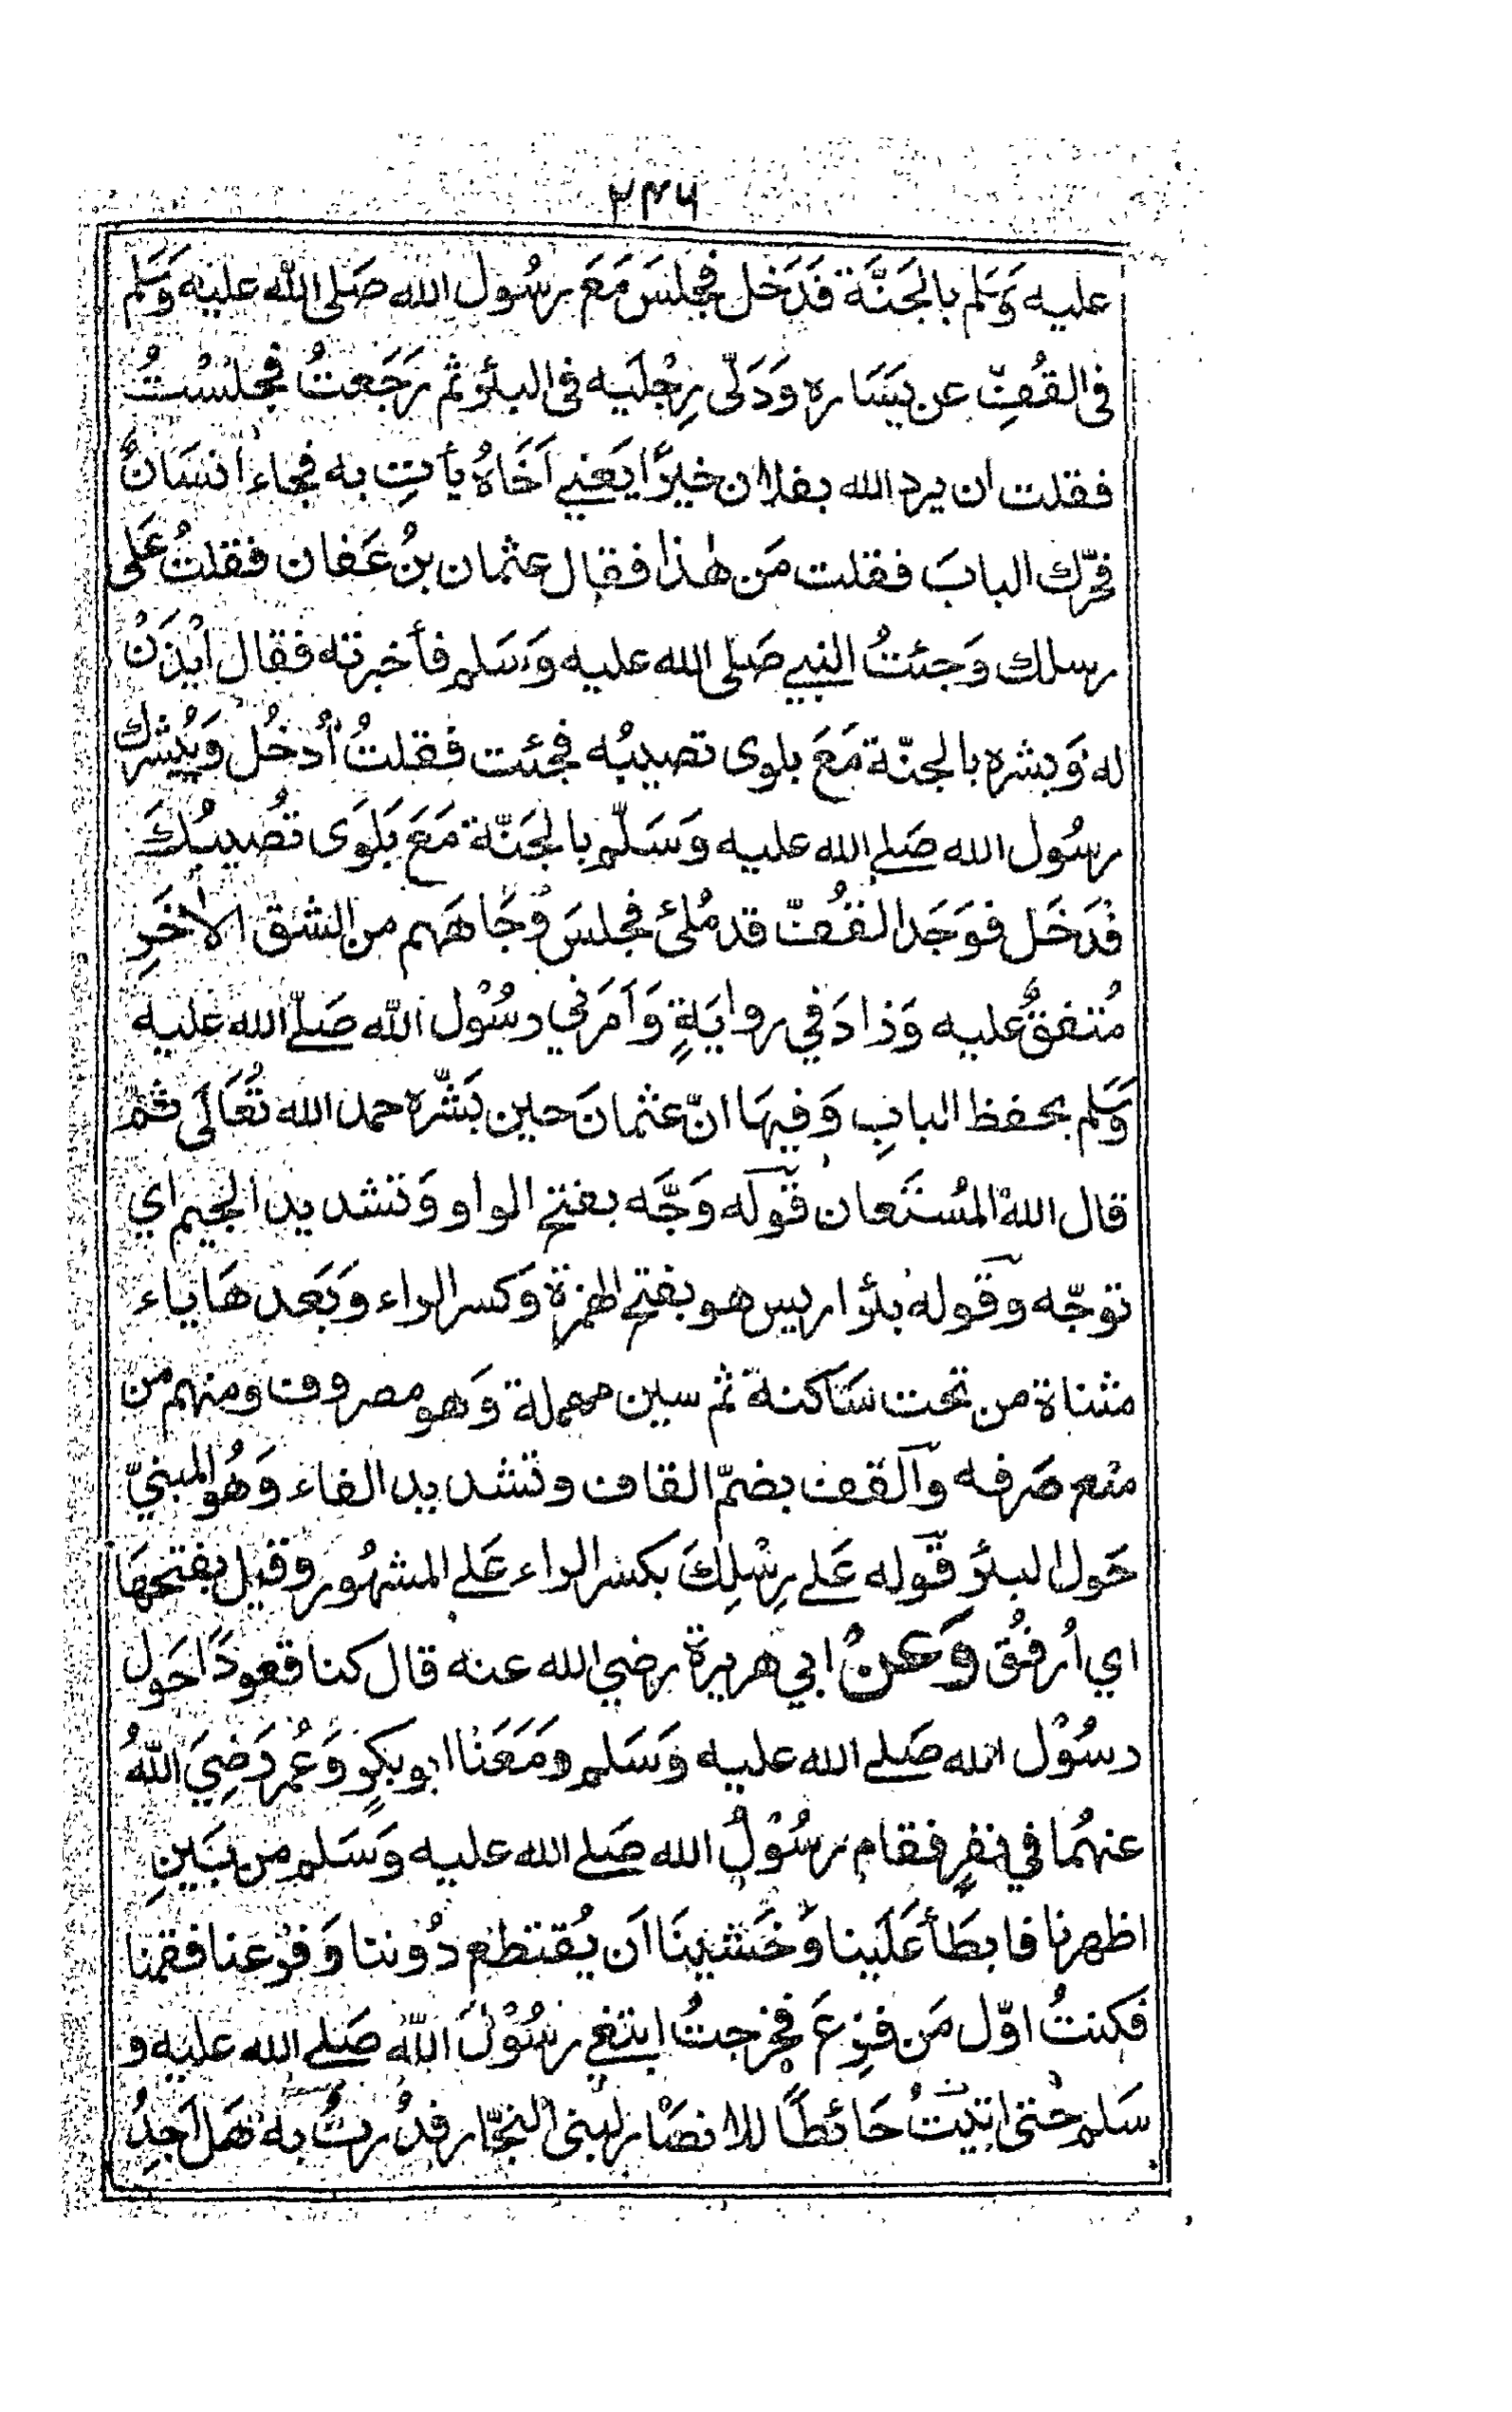 ٢٤٦
عليه وَسَلم بالجَنَّة فَدَخل فجلسَ مَعَ رسُول الله صَلى الله عليه وَسَلم
فى القُفِّ عن يَسَاره وَدَلّى رِجْلَيه فى البئر ثم رَجَعتُ فجلسْتُ
فقلت ان يرد الله بفلان خيرًا يَعني اَخَاهُ يأتِ به فجاء انسَانٌ
فحرّك البابَ فقلت مَن هٰذا فقال عثمان بنُ عَفان فقلتُ عَلى
رسلك وَجئتُ النبي صَلى الله عليه وَسَلم فأخبرته فقال ائْذَنْ
له وَبشره بالجنّة مَعَ بلوى تصيبُه فجئت فقلتُ اُدخُل وَيُبشرك
رسُول الله صَلى الله عليه وَسَلّم بالجَنّة مَعَ بَلوَى تُصيبُكَ
فَدَخَل فوَجَد القُفّ قد مُلئ فجلسَ وُجَاهَهم من الشق الاٰخَرِ
مُتفقٌ عليه وَزادَ في روايَةٍ وَاَمَرَني رسُوْل الله صَلّى الله عليه
وَسَلم بحفظ البابِ وَفيهَا انّ عثمانَ حين بَشّره حمد الله تُعَالَى ثمّ
قال اللهُ المُستَعان قوله وَجَّه بفتح الواو وَتشديد الجيم اي
توجّه وقوله بئر اريس هو بفتح الهمزة وَكسر الراء وَبَعدهَا ياء
مثناة من تحت سَاكنة ثم سين مهملة وَهو مصروف ومنهم من
منع صَرفه وَالقف بضمّ القاف وتشديد الفاء وَهُو المبنيّ
حَول البئر قوله عَلى رِسْلِكَ بكسر الراء عَلى المشهُور وقيل بفتحهَا
اي اُرفُق وَعَنْ ابي هريرة رضي الله عنه قال كنا قعودًا حَول
رسُوْل الله صَلى الله عليه وَسَلم وَمَعَنَا ابو بكرٍ وَعُمر رَضِيَ اللهُ
عنهُما في نفرٍ فقام رسُوْلُ الله صَلى الله عليه وَسَلم من بَينِ
اظهرنا فابطَأ عَلَينا وَخَشينَا اَن يُقتطع دُوننا وَفزعنا فقمنا
فكنتُ اوّل مَن فزِعَ فخرجتُ ابتغي رسُوْلَ اللهِ صَلى الله عليه و
سَلم حتى اتيتُ حَائطًا للانصَار لبنى النجّار فدُرتُ به هَل اَجِدُ